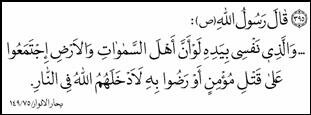 ﴿٣٩٥﴾ قَالَ رَسُولُ اللّٰهِ (ص):
... وَالَّذِي نَفْسِي بِيَدِهِ لَوْ أَنَّ أَهْلَ السَّمٰوَاتِ وَالأَرْضِ إِجْتَمَعُوا
عَلىٰ قَتْلِ مُؤْمِنٍ أَوْ رَضُوا بِهِ لَأَدْخَلَهُمُ اللّٰهُ فِي النَّارِ.
بحار الانوار ١٤٩/٧٥